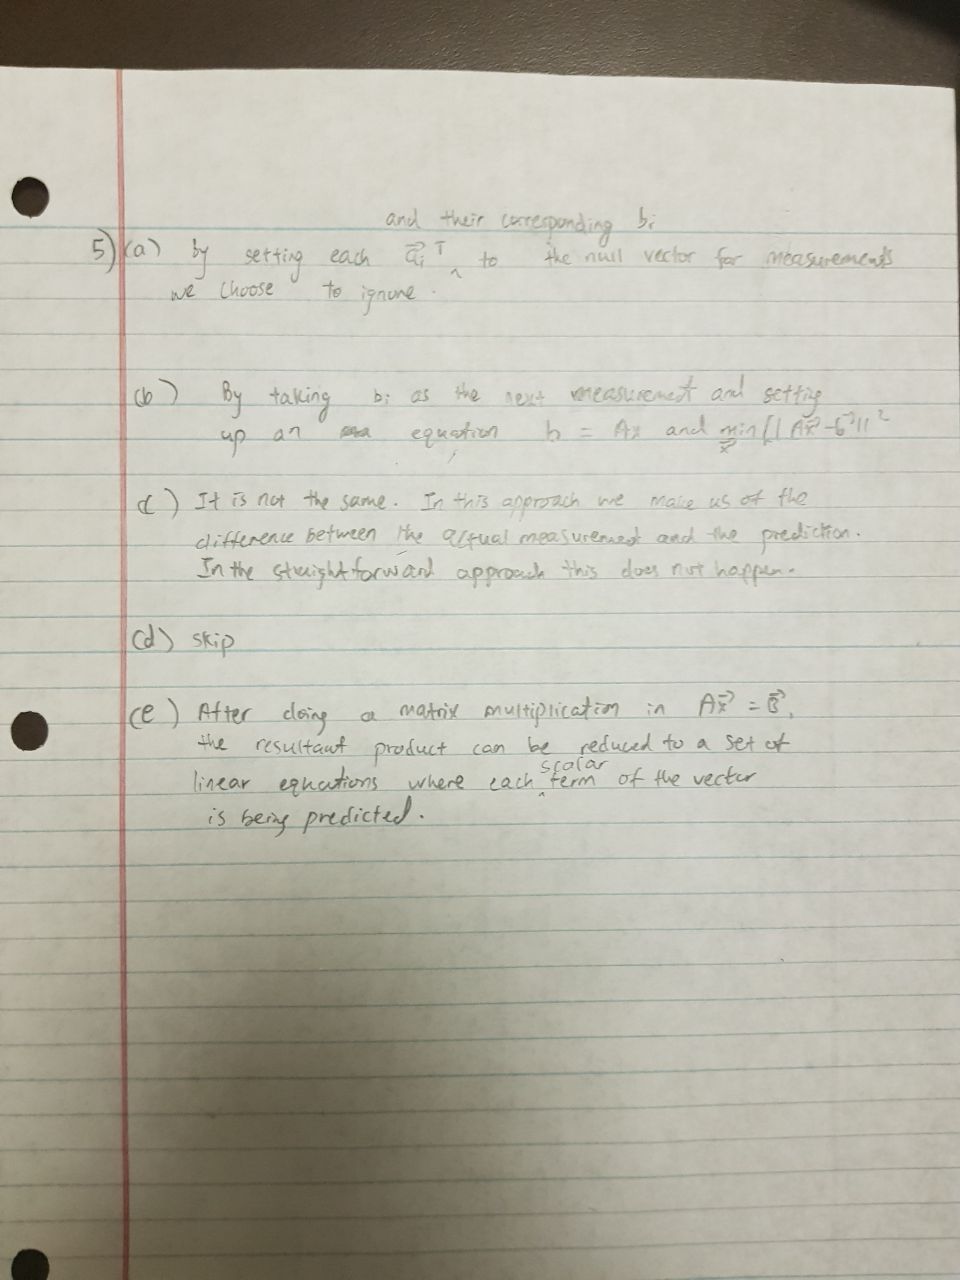 and their corresponding bᵢ
5) (a) by setting each a⃗ᵢᵀ ^ to the null vector for measurements
we choose to ignore.
(b) By taking bᵢ as the next measurement and setting
up an equation b = Ax and min x⃗ || Ax⃗ - b⃗ ||²
c) It is not the same. In this approach we make us of the
difference between the actual measurement and the prediction.
In the straightforward approach this does not happen.
(d) skip
(e) After doing a matrix multiplication in Ax⃗ = B⃗,
the resultant product can be reduced to a set of
scalar
linear equations where each ^ term of the vector
is being predicted.